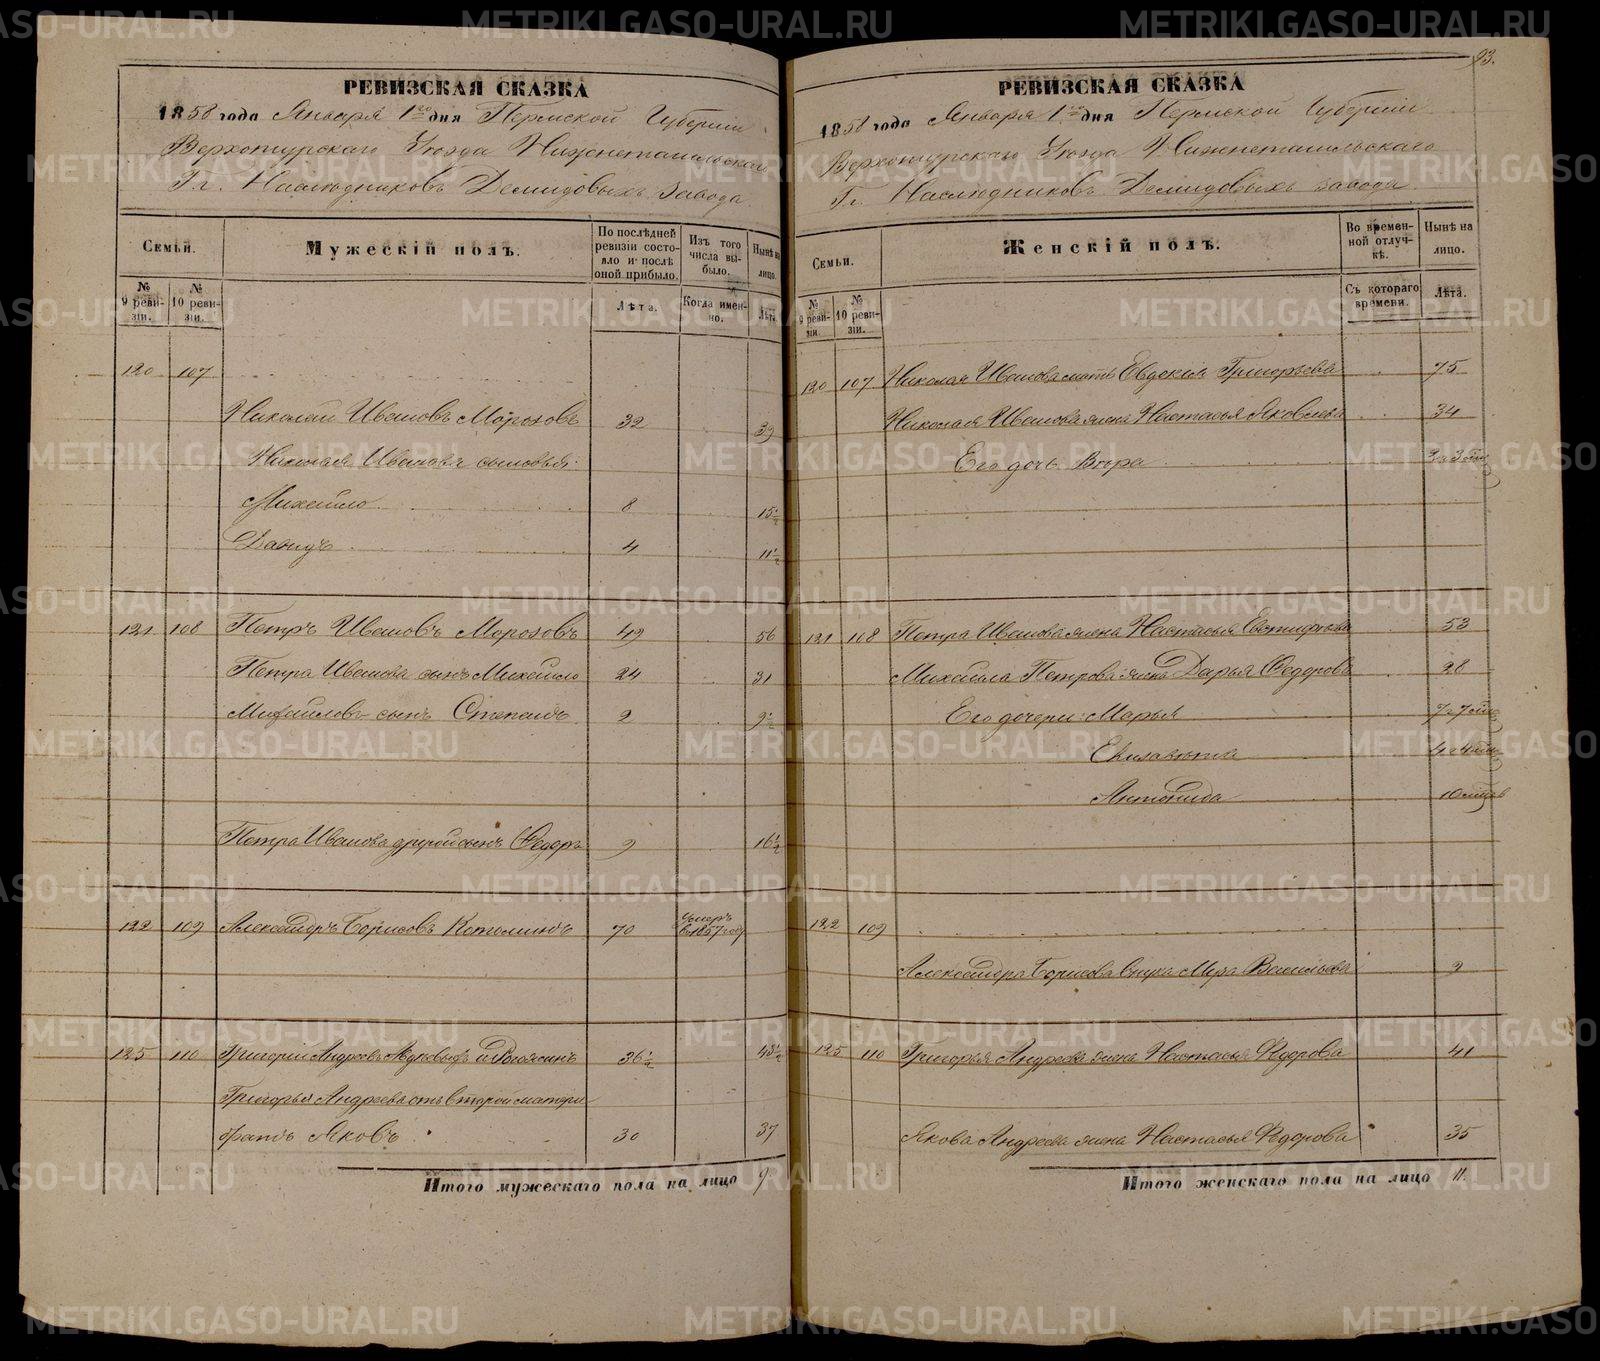 93.
РЕВИЗСКАЯ СКАЗКА
1858 года Января 1го дня Пермской Губернiи
Верхотурскаго Уѣзда Нижнетагильскаго
Гг. Наслѣдниковъ Демидовыхъ завода
Семьи.
Мужескiй полъ.
По послѣдней ревизiи состояло и послѣ оной прибыло.
Изъ того числа выбыло.
Нынѣ на лицо.
№ 9 ревизiи.
№ 10 ревизiи.
Лѣта.
Когда именно.
Лѣта.
120 107
Николай Ивановъ Морозовъ 32 39
Николая Иванова сыновья:
Михайло 8 15½
Давидъ 4 11½
121 108 Петръ Ивановъ Морозовъ 49 56
Петра Иванова сынъ Михайло 24 31
Михайловъ сынъ Степанъ 2 9½
Петра Иванова другой сынъ Ѳедоръ 9 16½
122 109 Александръ Борисовъ 70 умеръ въ 1857 году
125 110 Григорiй Андреевъ 36½ 43½
Григорья Андреева отъ второй матери
братъ Яковъ 30 37
Итого мужескаго пола на лицо 9.
РЕВИЗСКАЯ СКАЗКА
1858 года Января 1го дня Пермской Губернiи
Верхотурскаго Уѣзда Нижнетагильскаго
Гг. Наслѣдниковъ Демидовыхъ завода
Семьи.
Женскiй полъ.
Во временной отлучкѣ.
Нынѣ на лицо.
№ 9 ревизiи.
№ 10 ревизiи.
Съ котораго времени.
Лѣта.
120 107 Николая Иванова мать Евдокiя Григорьева 75
Николая Иванова жена Настасья Яковлева 34
Его дочь Вѣра
121 108 Петра Иванова жена Настасья 53
Михайла Петрова жена Дарья Ѳедорова 28
Его дочери: Марья
Елизавета
Антонида
122 109
Александра Борисова внука Васильева 9
125 110 Григорья Андреева жена Настасья Ѳедорова 41
Якова Андреева жена Настасья Ѳедорова 35
Итого женскаго пола на лицо 11.
METRIKI.GASO-URAL.RU